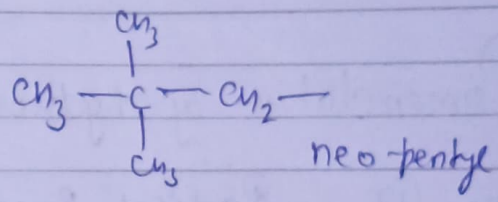 CH3
CH3 — C — CH2 —
CH3
neo-pentyl